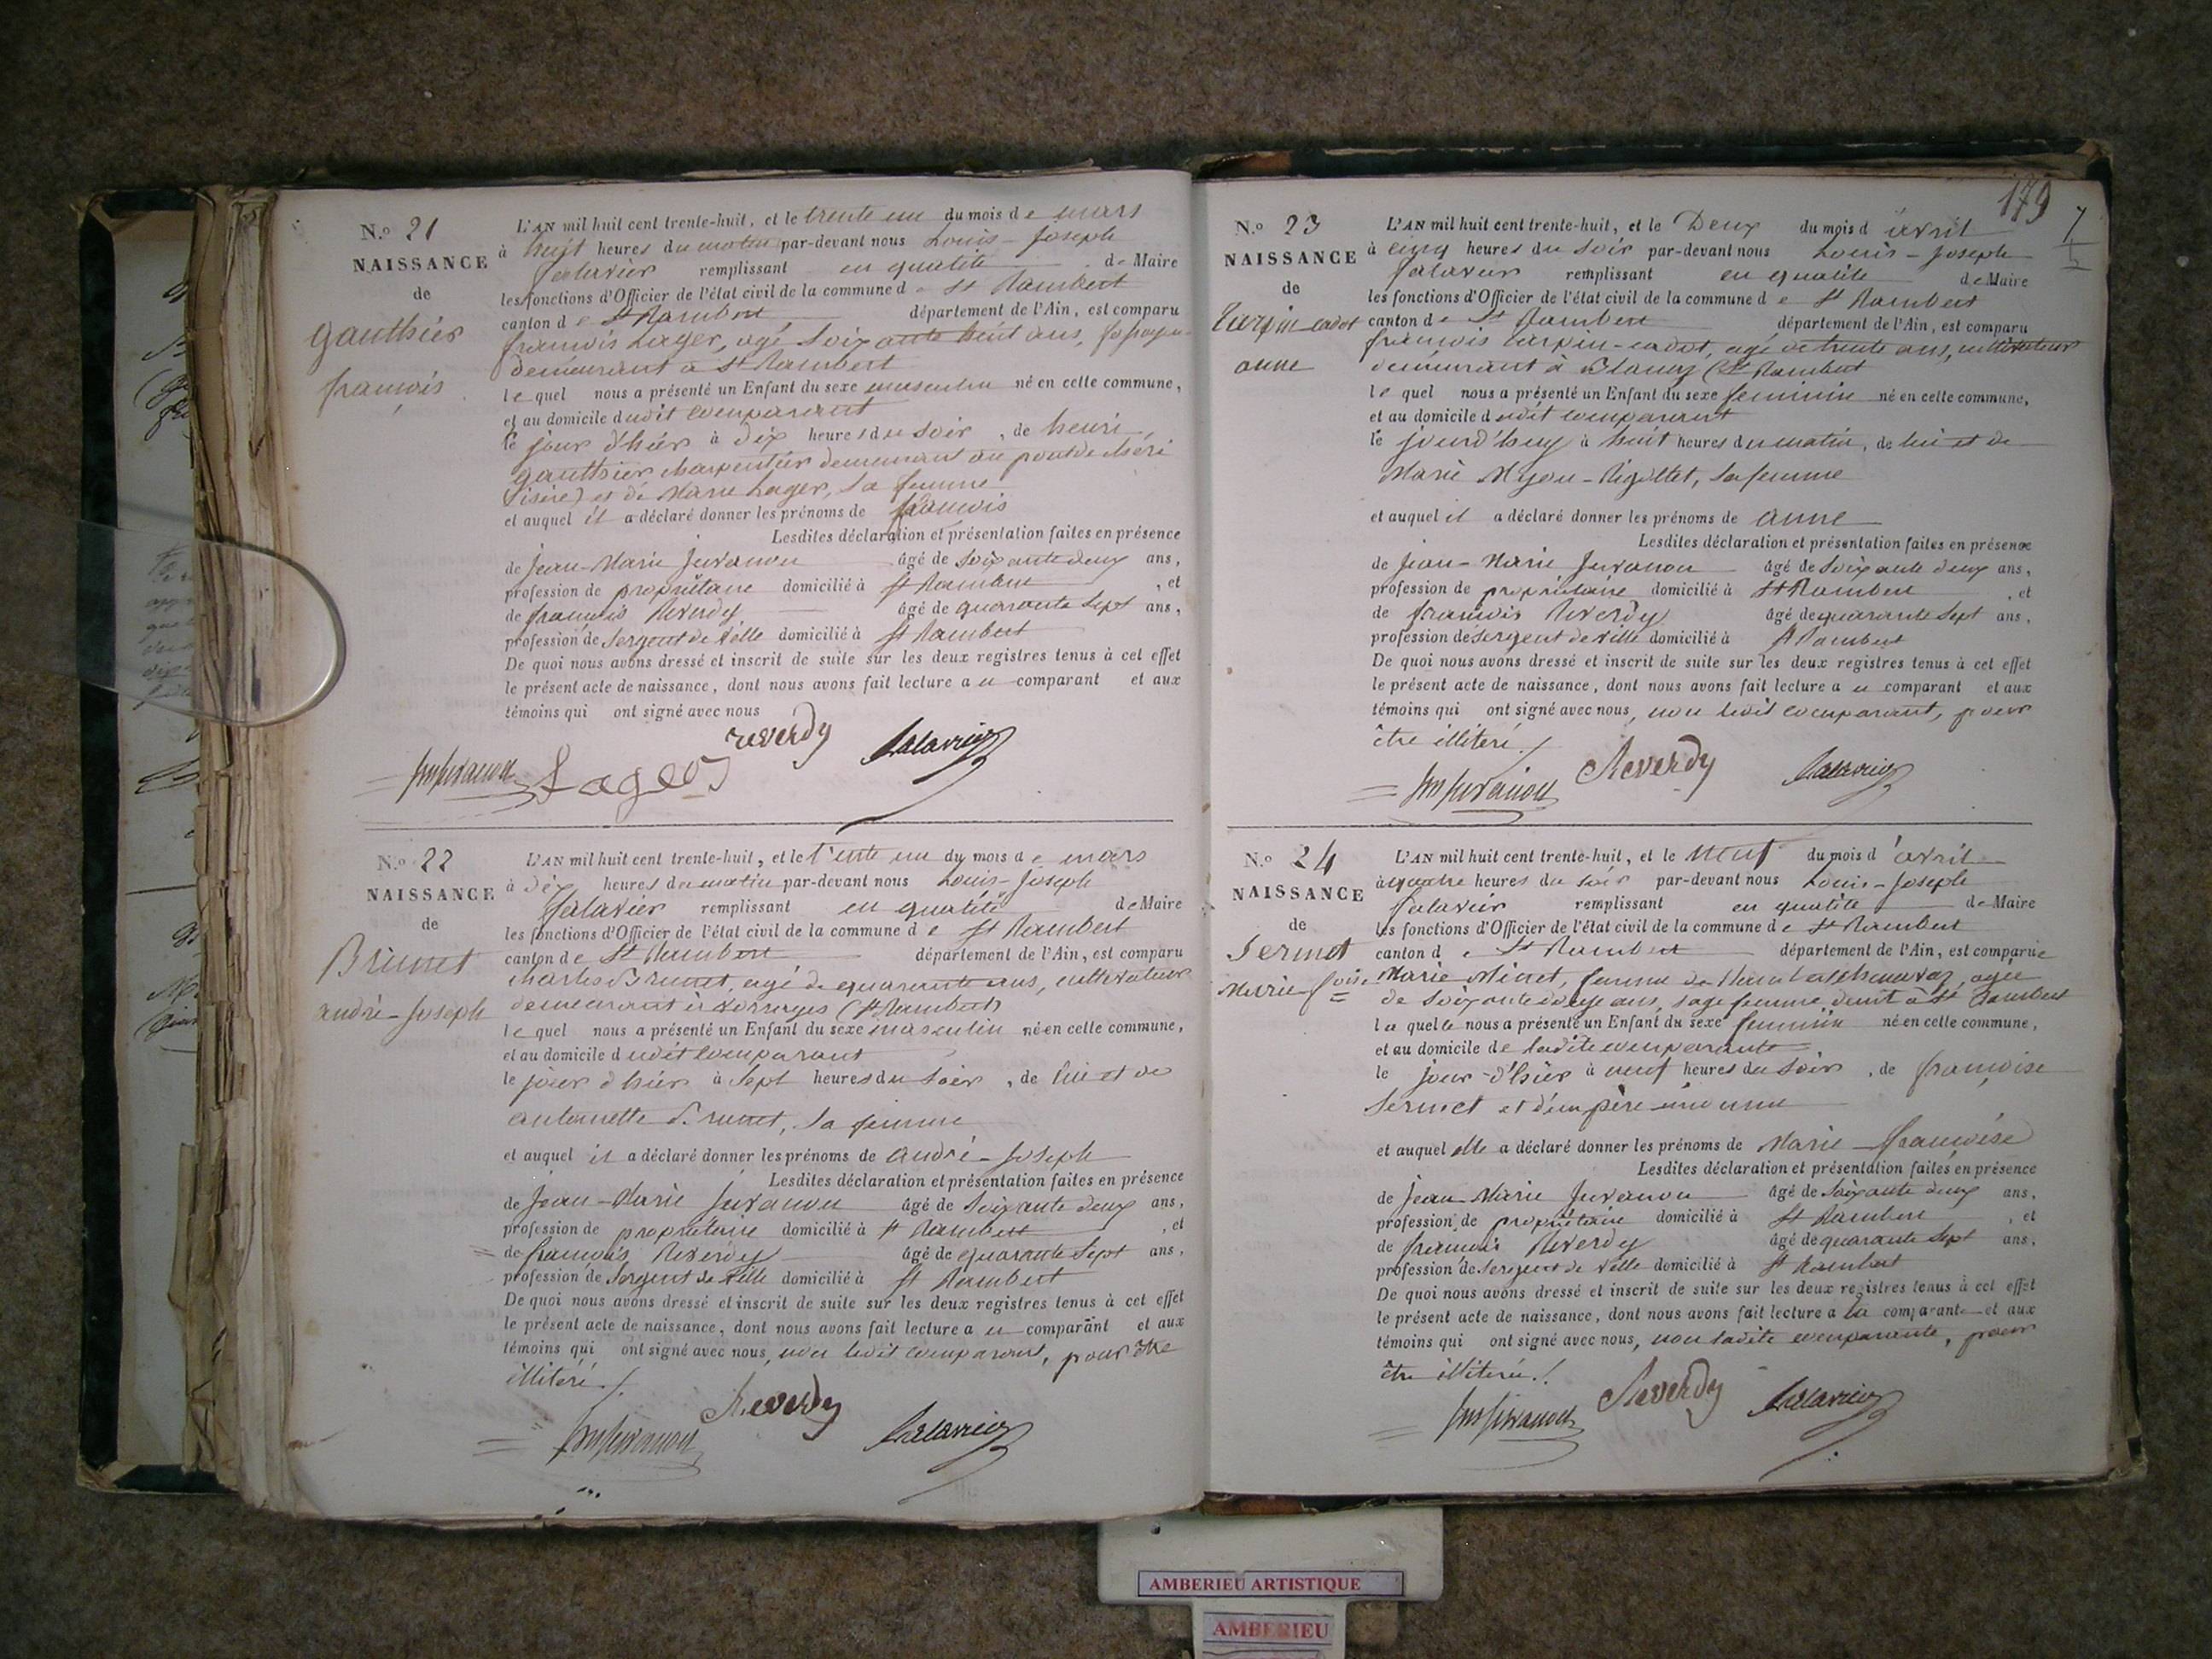 N.º 21
NAISSANCE
de
gauthier
françois
L'AN mil huit cent trente-huit, et le trente un du mois de mars
à huit heures du matin par-devant nous Louis-Joseph
Salavier remplissant en qualité de Maire
les fonctions d'Officier de l'état civil de la commune de St Rambert
canton de St Rambert département de l'Ain, est comparu
françois Lager, agé soixante huit ans,
demeurant à St Rambert
lequel nous a présenté un Enfant du sexe masculin né en cette commune,
et au domicile dudit comparant
le jour d'hier à dix heures du soir, de henri
gauthier charpentier demeurant au pont de
(isère) et de Marie Lager, sa femme
et auquel il a déclaré donner les prénoms de françois
Lesdites déclaration et présentation faites en présence
de Jean-Marie Juvanon âgé de soixante deux ans,
profession de propriétaire domicilié à St Rambert, et
de françois Reverdy âgé de quarante sept ans,
profession de sergent de ville domicilié à St Rambert
De quoi nous avons dressé et inscrit de suite sur les deux registres tenus à cet effet
le présent acte de naissance, dont nous avons fait lecture au comparant et aux
témoins qui ont signé avec nous
reverdy Salavier
Jm Juvanon Lager
N.º 22
NAISSANCE
de
Brunet
andré-Joseph
L'AN mil huit cent trente-huit, et le trente un du mois de mars
à dix heures du matin par-devant nous Louis-Joseph
Salavier remplissant en qualité de Maire
les fonctions d'Officier de l'état civil de la commune de St Rambert
canton de St Rambert département de l'Ain, est comparu
charles Brunet, agé de quarante ans, cultivateur
demeurant à (St Rambert)
lequel nous a présenté un Enfant du sexe masculin né en cette commune,
et au domicile dudit comparant
le jour d'hier à sept heures du soir, de lui et de
antoinette Brunet, sa femme
et auquel il a déclaré donner les prénoms de andré-Joseph
Lesdites déclaration et présentation faites en présence
de Jean-Marie Juvanon âgé de soixante deux ans,
profession de propriétaire domicilié à St Rambert, et
de françois Reverdy âgé de quarante sept ans,
profession de sergent de ville domicilié à St Rambert
De quoi nous avons dressé et inscrit de suite sur les deux registres tenus à cet effet
le présent acte de naissance, dont nous avons fait lecture au comparant et aux
témoins qui ont signé avec nous, non ledit comparant, pour être
illitéré ./.
Reverdy
Jm Juvanon Salavier
179
N.º 23
NAISSANCE
de
Turpin-cadot
anne
L'AN mil huit cent trente-huit, et le Deux du mois d'avril
à cinq heures du soir par-devant nous Louis-Joseph
Salavier remplissant en qualité de Maire
les fonctions d'Officier de l'état civil de la commune de St Rambert
canton de St Rambert département de l'Ain, est comparu
françois turpin-cadot, agé de trente ans, cultivateur
demeurant à (St Rambert
lequel nous a présenté un Enfant du sexe féminin né en cette commune,
et au domicile dudit comparant
le jourd'huy à huit heures du matin, de lui et de
Marie sa femme
et auquel il a déclaré donner les prénoms de anne
Lesdites déclaration et présentation faites en présence
de Jean-Marie Juvanon âgé de soixante deux ans,
profession de propriétaire domicilié à St Rambert, et
de françois Reverdy âgé de quarante sept ans,
profession de sergent de ville domicilié à St Rambert
De quoi nous avons dressé et inscrit de suite sur les deux registres tenus à cet effet
le présent acte de naissance, dont nous avons fait lecture au comparant et aux
témoins qui ont signé avec nous, non ledit comparant, pour
être illitéré ./.
Jm Juvanon Reverdy Salavier
N.º 24
NAISSANCE
de
Sermet
Marie-foise
L'AN mil huit cent trente-huit, et le neuf du mois d'avril
à quatre heures du soir par-devant nous Louis-Joseph
Salavier remplissant en qualité de Maire
les fonctions d'Officier de l'état civil de la commune de St Rambert
canton de St Rambert département de l'Ain, est comparue
Marie femme de agée
de soixante ans, sage femme, demt à St Rambert
laquelle nous a présenté un Enfant du sexe féminin né en cette commune,
et au domicile de ladite comparante
le jour-d'hier à neuf heures du soir, de françoise
Sermet et d'un père inconnu
et auquel elle a déclaré donner les prénoms de Marie-françoise
Lesdites déclaration et présentation faites en présence
de Jean-Marie Juvanon âgé de soixante deux ans,
profession de propriétaire domicilié à St Rambert, et
de françois Reverdy âgé de quarante sept ans,
profession de sergent de ville domicilié à St Rambert
De quoi nous avons dressé et inscrit de suite sur les deux registres tenus à cet effet
le présent acte de naissance, dont nous avons fait lecture a la comparante et aux
témoins qui ont signé avec nous, non ladite comparante, pour
être illitérée ./.
Jm Juvanon Reverdy Salavier
AMBERIEU ARTISTIQUE
AMBERIEU